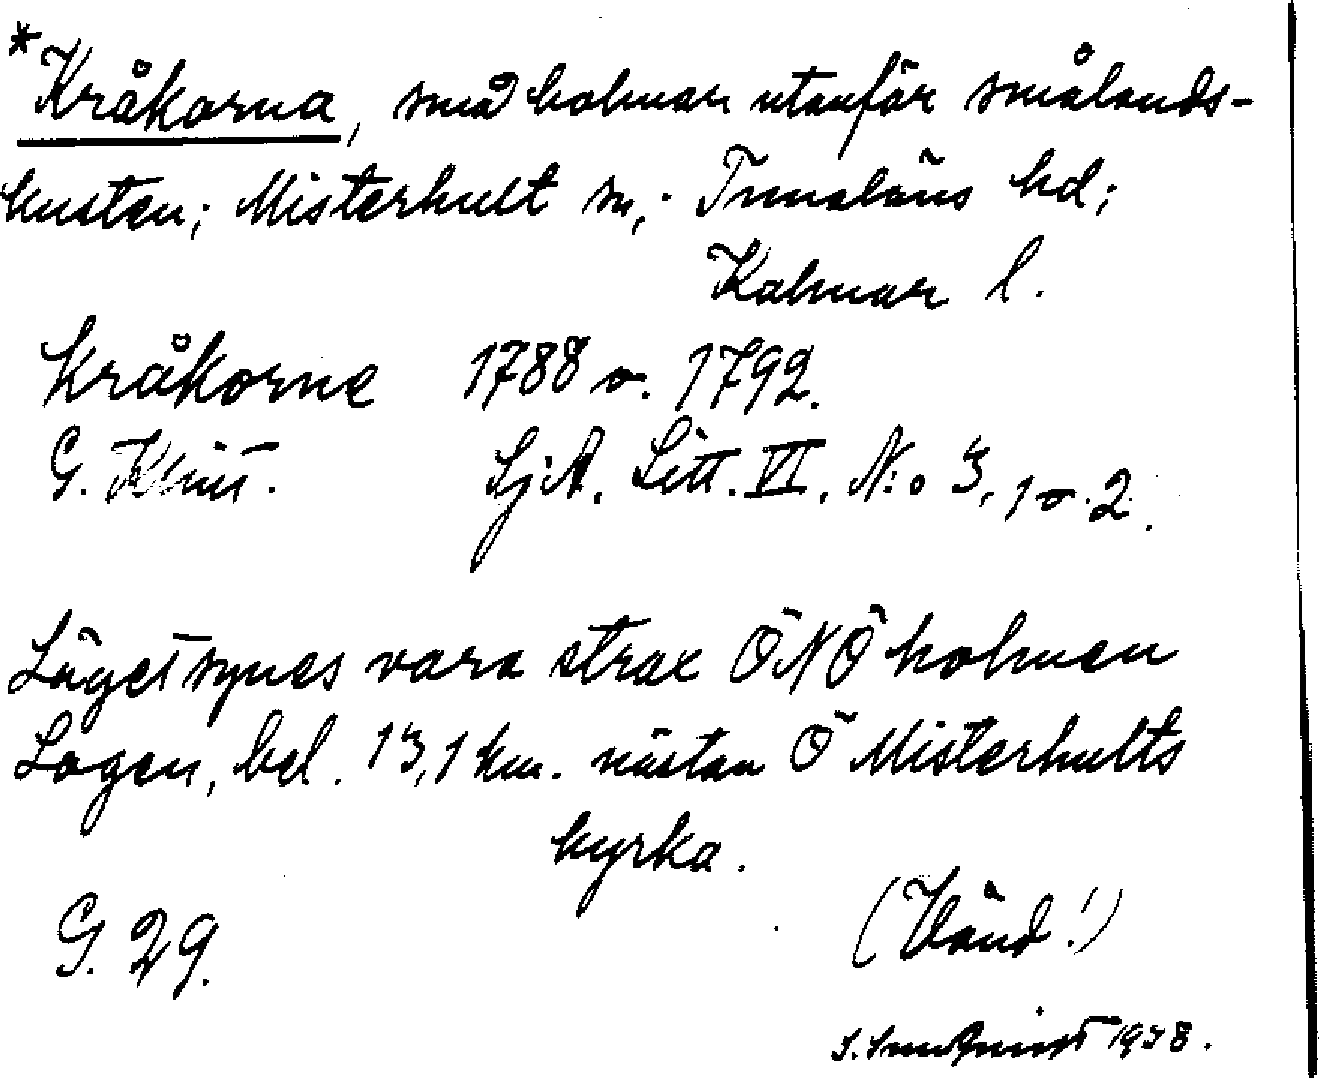 *Kråkorna, små holmar utanför smålands-
kusten; Misterhult sn,; Tunaläns hd;
Kalmar l.
Kråkorne 1788 o. 1792.
G. Klint. SjA. Litt. VI. N:o 3, 1 o. 2.
Läget synes vara strax ÖNÖ holmen
Logen, bel. 13,1 km. nästan Ö Misterhults
kyrka.
G. 29. (Vänd!)
1938.